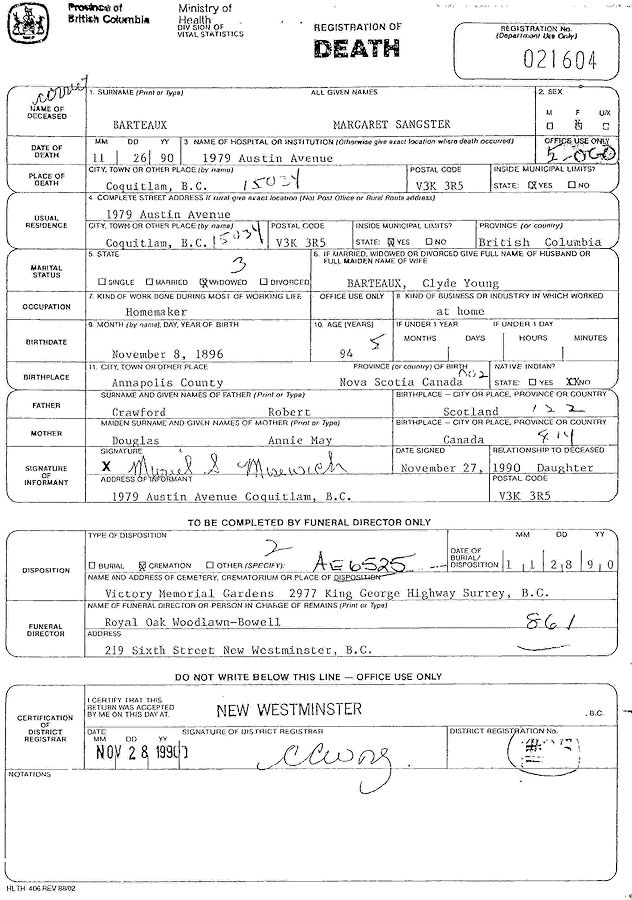 Province of
British Columbia
Ministry of
Health
DIVISION OF
VITAL STATISTICS
REGISTRATION OF
DEATH
REGISTRATION No.
(Department Use Only)
021604
correct
NAME OF
DECEASED
1. SURNAME (Print or Type) ALL GIVEN NAMES 2. SEX
M F U/K
BARTEAUX MARGARET SANGSTER ☐ ☒ ☐
DATE OF
DEATH
MM DD YY 3 NAME OF HOSPITAL OR INSTITUTION (Otherwise give exact location where death occurred) OFFICE USE ONLY
11 26 90 1979 Austin Avenue
PLACE OF
DEATH
CITY, TOWN OR OTHER PLACE (by name) POSTAL CODE INSIDE MUNICIPAL LIMITS?
Coquitlam, B.C. 15034 V3K 3R5 STATE: ☒ YES ☐ NO
USUAL
RESIDENCE
4. COMPLETE STREET ADDRESS If rural give exact location (Not Post Office or Rural Route address)
1979 Austin Avenue
CITY, TOWN OR OTHER PLACE (by name) POSTAL CODE INSIDE MUNICIPAL LIMITS? PROVINCE (or country)
Coquitlam, B.C. 15034 V3K 3R5 STATE: ☒ YES ☐ NO British Columbia
MARITAL
STATUS
5. STATE 6. IF MARRIED, WIDOWED OR DIVORCED GIVE FULL NAME OF HUSBAND OR
FULL MAIDEN NAME OF WIFE
3
☐ SINGLE ☐ MARRIED ☒ WIDOWED ☐ DIVORCED BARTEAUX, Clyde Young
OCCUPATION
7. KIND OF WORK DONE DURING MOST OF WORKING LIFE OFFICE USE ONLY 8 KIND OF BUSINESS OR INDUSTRY IN WHICH WORKED
Homemaker at home
BIRTHDATE
9. MONTH (by name), DAY, YEAR OF BIRTH 10. AGE (YEARS) IF UNDER 1 YEAR IF UNDER 1 DAY
MONTHS DAYS HOURS MINUTES
November 8, 1896 94 5
BIRTHPLACE
11. CITY, TOWN OR OTHER PLACE PROVINCE (or country) OF BIRTH NATIVE INDIAN?
Annapolis County Nova Scotia Canada 002 STATE: ☐ YES XX NO
FATHER
SURNAME AND GIVEN NAMES OF FATHER (Print or Type) BIRTHPLACE — CITY OR PLACE, PROVINCE OR COUNTRY
Crawford Robert Scotland 122
MOTHER
MAIDEN SURNAME AND GIVEN NAMES OF MOTHER (Print or Type) BIRTHPLACE — CITY OR PLACE, PROVINCE OR COUNTRY
Douglas Annie May Canada
SIGNATURE
OF
INFORMANT
SIGNATURE DATE SIGNED RELATIONSHIP TO DECEASED
X Muriel S November 27, 1990 Daughter
ADDRESS OF INFORMANT POSTAL CODE
1979 Austin Avenue Coquitlam, B.C. V3K 3R5
TO BE COMPLETED BY FUNERAL DIRECTOR ONLY
DISPOSITION
TYPE OF DISPOSITION
2
☐ BURIAL ☒ CREMATION ☐ OTHER (SPECIFY): AE6525
DATE OF
BURIAL/
DISPOSITION
MM DD YY
1 1 2 8 9 0
NAME AND ADDRESS OF CEMETERY, CREMATORIUM OR PLACE OF DISPOSITION
Victory Memorial Gardens 2977 King George Highway Surrey, B.C.
FUNERAL
DIRECTOR
NAME OF FUNERAL DIRECTOR OR PERSON IN CHARGE OF REMAINS (Print or Type)
Royal Oak Woodlawn-Bowell 861
ADDRESS
219 Sixth Street New Westminster, B.C.
DO NOT WRITE BELOW THIS LINE — OFFICE USE ONLY
CERTIFICATION
OF
DISTRICT
REGISTRAR
I CERTIFY THAT THIS
RETURN WAS ACCEPTED
BY ME ON THIS DAY AT.
NEW WESTMINSTER , B.C.
DATE SIGNATURE OF DISTRICT REGISTRAR DISTRICT REGISTRATION No.
MM DD YY
NOV 28 1990
NOTATIONS
HLTH 406 REV 88/02